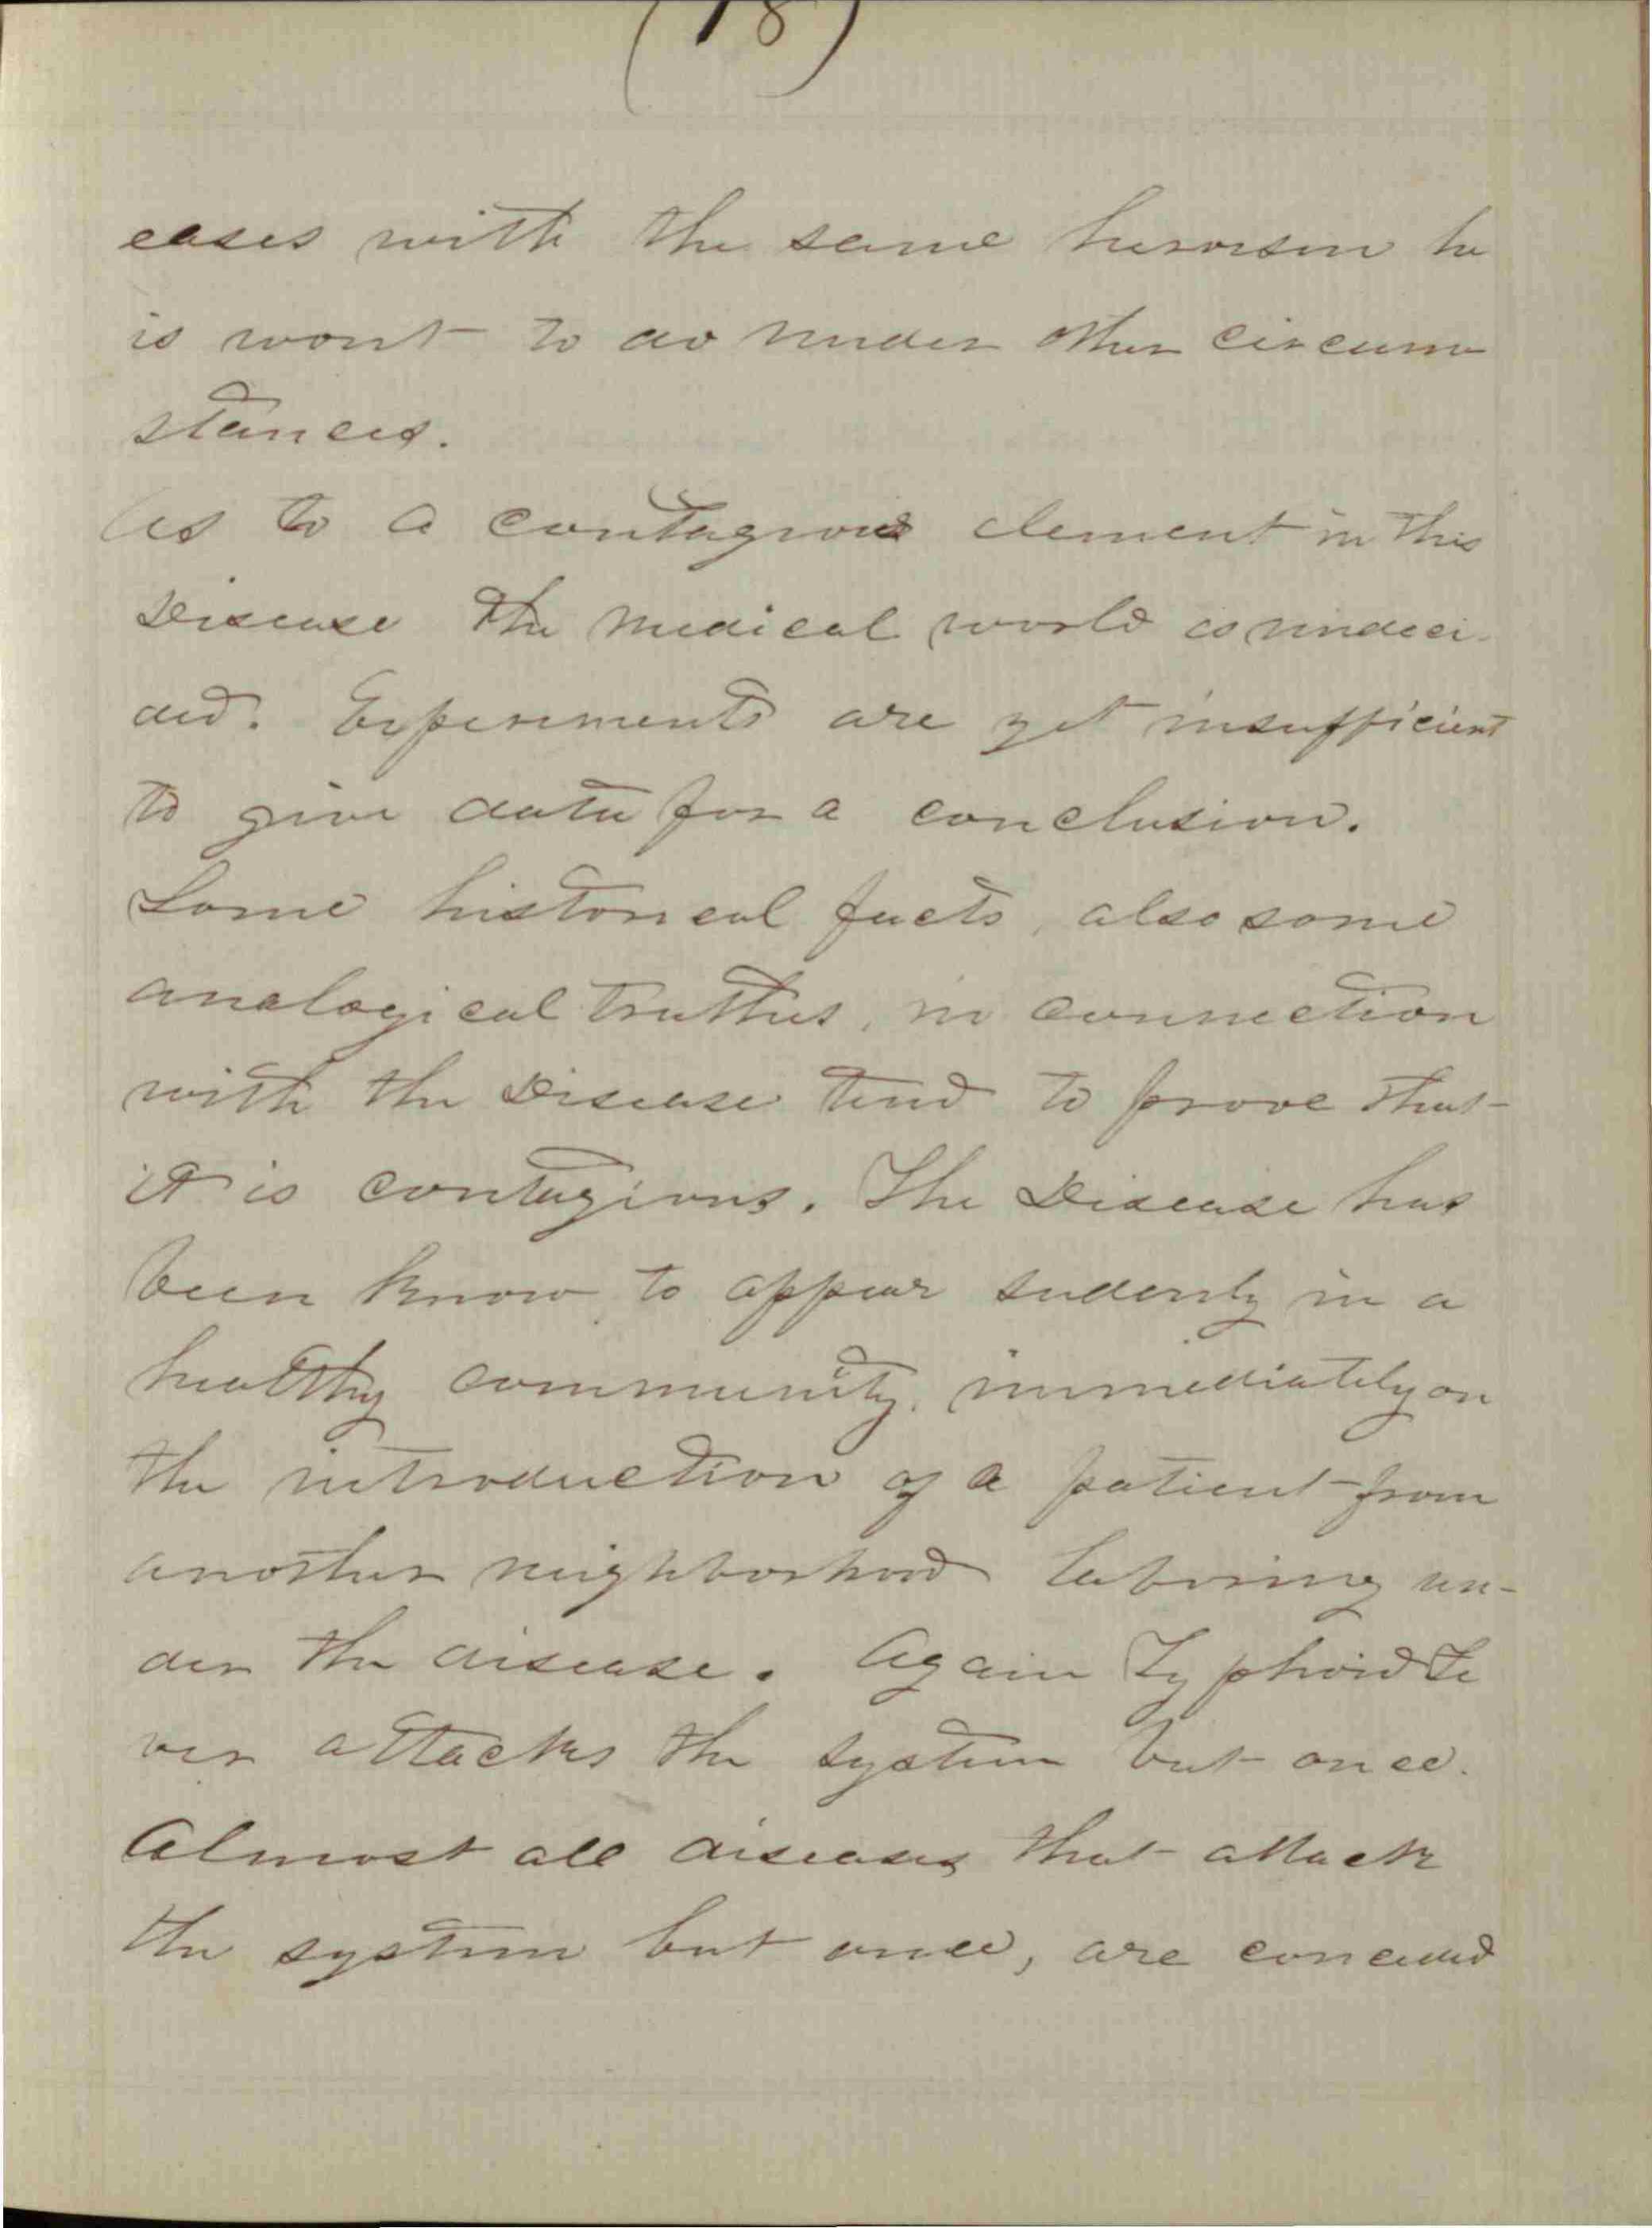 (18)
cases with the same heroism he
is wont to do under other circum
stances.
As to a contagious element in this
Disease the medical world is undeci-
ded. Experiments are yet insufficient
to give data for a conclusion.
Some historical facts, also some
analogical truths, in connection
with the Disease tend to prove that
it is contagious. The Disease has
been know to appear sudenly in a
healthy community, immediately on
the introduction of a patient from
another neighborhood laboring un-
der the disease. Again Typhoid Fe
ver attacks the system but once.
Almost all diseases that attack
the system but once, are conceded